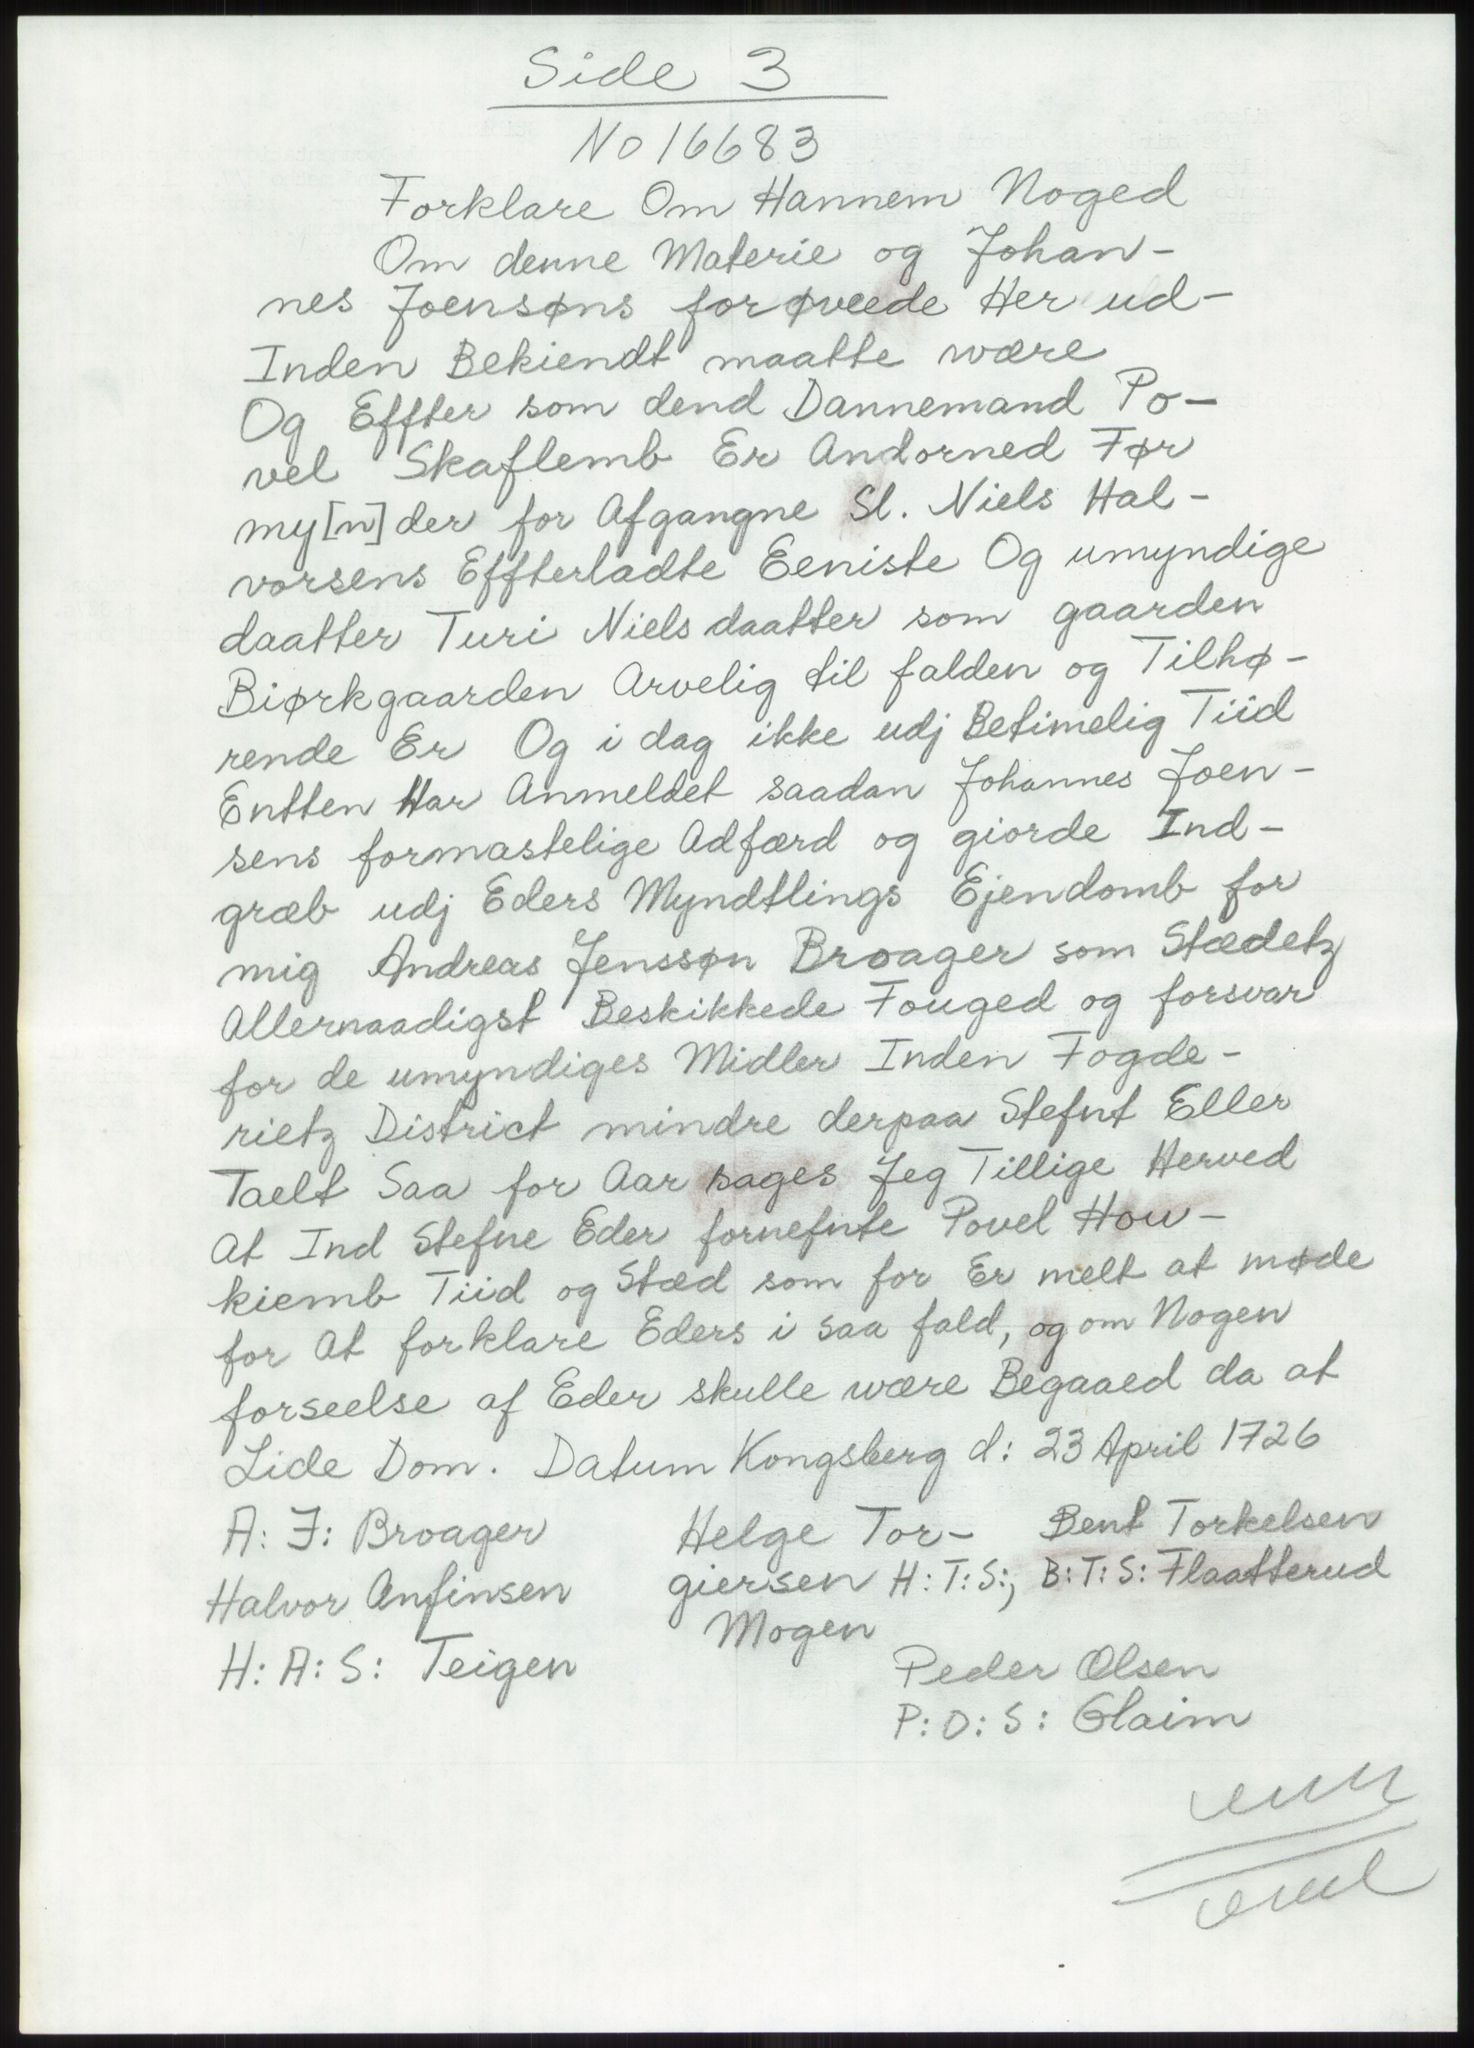 Side 3
No 16683
Forklare Om Hannem Noged
Om denne Materie og Johan-
nes Joensøns forøveede Her ud-
Inden Bekiendt maatte være
Og Effter som dend Dannemand Po-
vel Skaflemb Er Andorned Før
my[n]der for Afgangne Sl. Niels Hal-
vorsens Effterladte Eeniste Og umyndige
daatter Turi Niels daatter som gaarden
Biørkgaarden Arvelig til falden og Tilhø-
rende Er Og i dag ikke udj Betimelig Tiid
Entten Har Anmeldet saadan Johannes Joen-
sens formastelige Adfærd og giorde Ind-
græb udj Eders Myndtlings Ejendomb for
mig Andreas Jenssøn Broager som Stædetz
Allernaadigst Beskikkede Fouged og forsvar
for de umyndiges Midler Inden Fogde-
rietz District mindre derpaa Stefnt Eller
Taelt Saa for Aar sages Jeg Tillige Herved
At Ind Stefne Eder fornefnte Povel How-
kiemb Tiid og Stæd som for Er melt at møde
for At forklare Eders i saa fald, og om Nogen
forseelse af Eder skulle være Begaaed da at
Lide Dom. Datum Kongsberg d: 23 April 1726
A: J: Broager Helge Tor- Bent Torkelsen
Halvor Anfinsen giersen H: T: S:, B: T: S: Flaatterud
H: A: S: Teigen Mogen
Peder Olsen
P: O: S: Glaim